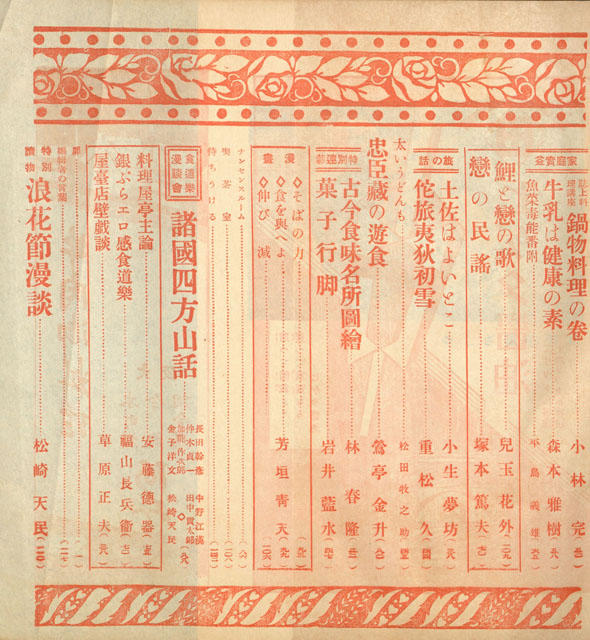 家庭賣釜
誌上料理講座 鍋物料理の卷 小林完
牛乳は健康の素 森本雅樹
魚菜毒能番附 平島義雄
鯉と戀の歌 兒玉花外
戀の民謠 塚本篤夫
旅の話
土佐はよいとこ 小生夢坊
佗旅夷狄初雪 重松久
太いうどんも 松田牧之助
忠臣藏の遊食 鶯亭金升
特別連載
古今食味名所圖繪 林春隆
菓子行脚 岩井藍水
漫畫
◇そばの力
◇食を與へよ 芳垣靑天
◇伸び減
ナンセンスルーム
喫茶室
待ちうける
食道樂漫談會
諸國四方山話
長田幹彦 中野江漢
仲木貞一 田中貢太郎
金子洋文 松崎天民
料理屋亭主論 安藤德器
銀ぶらエロ感食道樂 福山長兵衞
屋臺店壁戯談 草原正夫
扉
編輯者の言葉
特別讀物 浪花節漫談 松崎天民